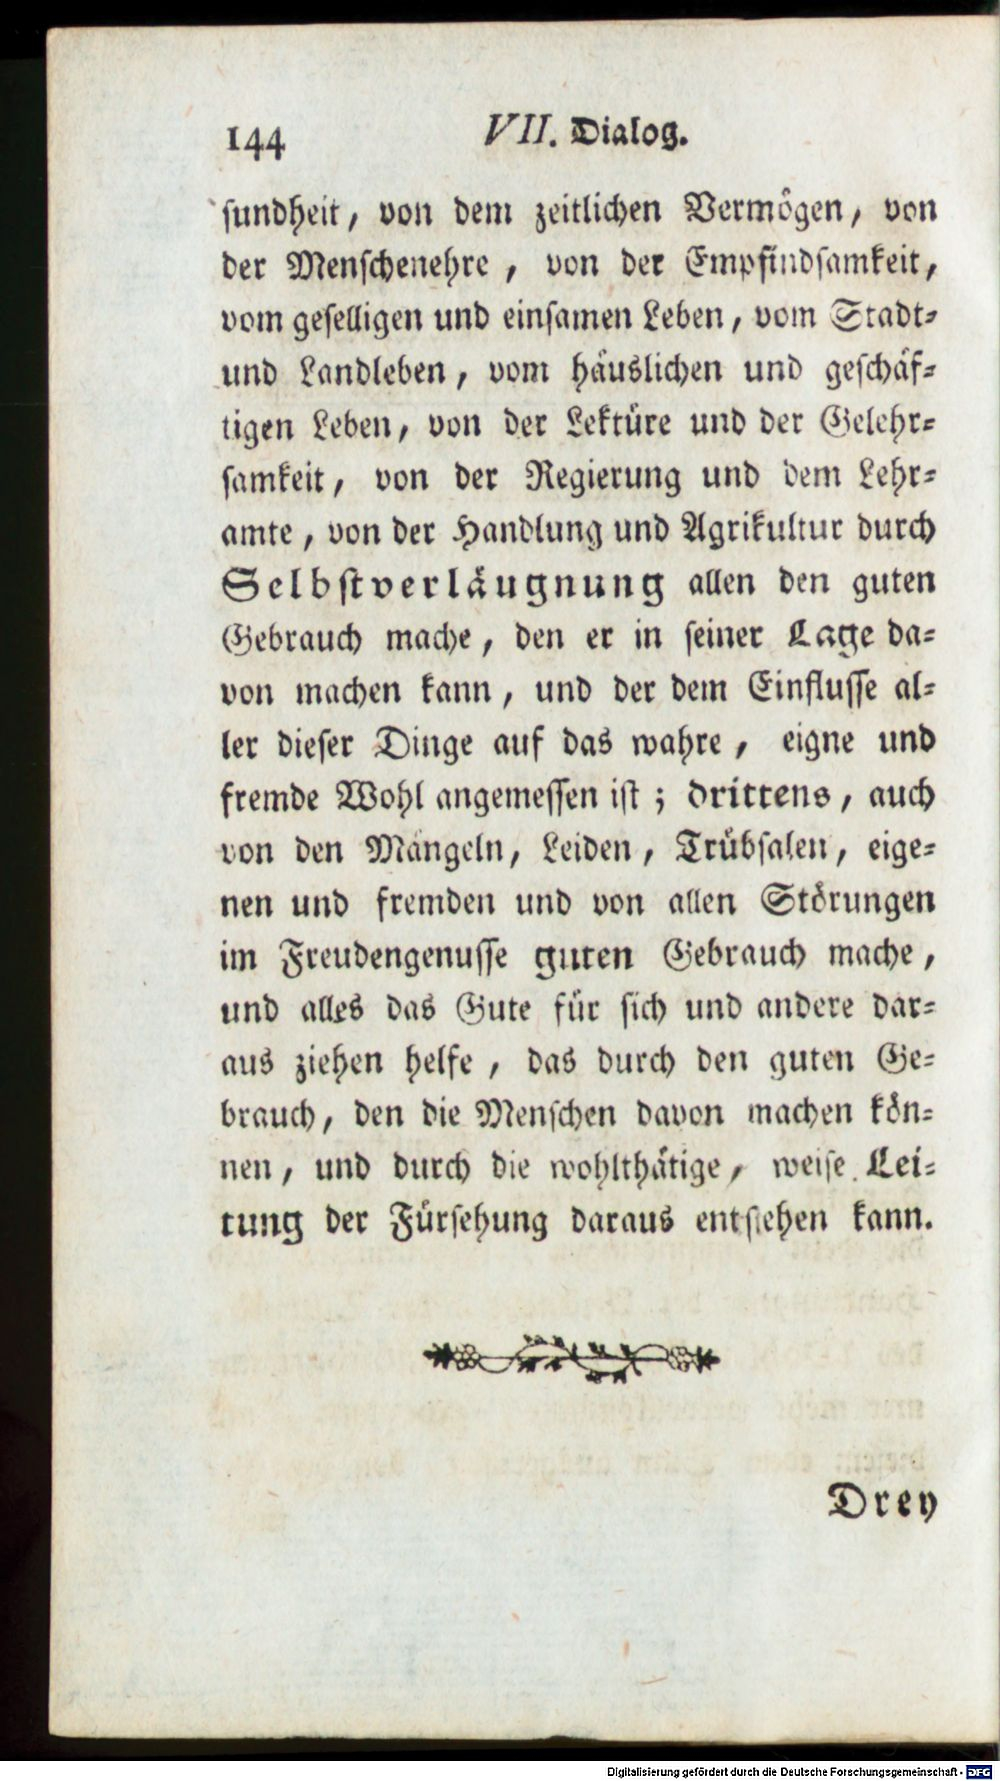 144 VII. Dialog.
sundheit, von dem zeitlichen Vermögen, von
der Menschenehre, von der Empfindsamkeit,
vom geselligen und einsamen Leben, vom Stadt-
und Landleben, vom häuslichen und geschäf-
tigen Leben, von der Lektüre und der Gelehr-
samkeit, von der Regierung und dem Lehr-
amte, von der Handlung und Agrikultur durch
Selbstverläugnung allen den guten
Gebrauch mache, den er in seiner Lage da-
von machen kann, und der dem Einflusse al-
ler dieser Dinge auf das wahre, eigne und
fremde Wohl angemessen ist; drittens, auch
von den Mängeln, Leiden, Trübsalen, eige-
nen und fremden und von allen Störungen
im Freudengenusse guten Gebrauch mache,
und alles das Gute für sich und andere dar-
aus ziehen helfe, das durch den guten Ge-
brauch, den die Menschen davon machen kön-
nen, und durch die wohlthätige, weise Lei-
tung der Fürsehung daraus entstehen kann.
Drey
Digitalisierung gefördert durch die Deutsche Forschungsgemeinschaft - DFG